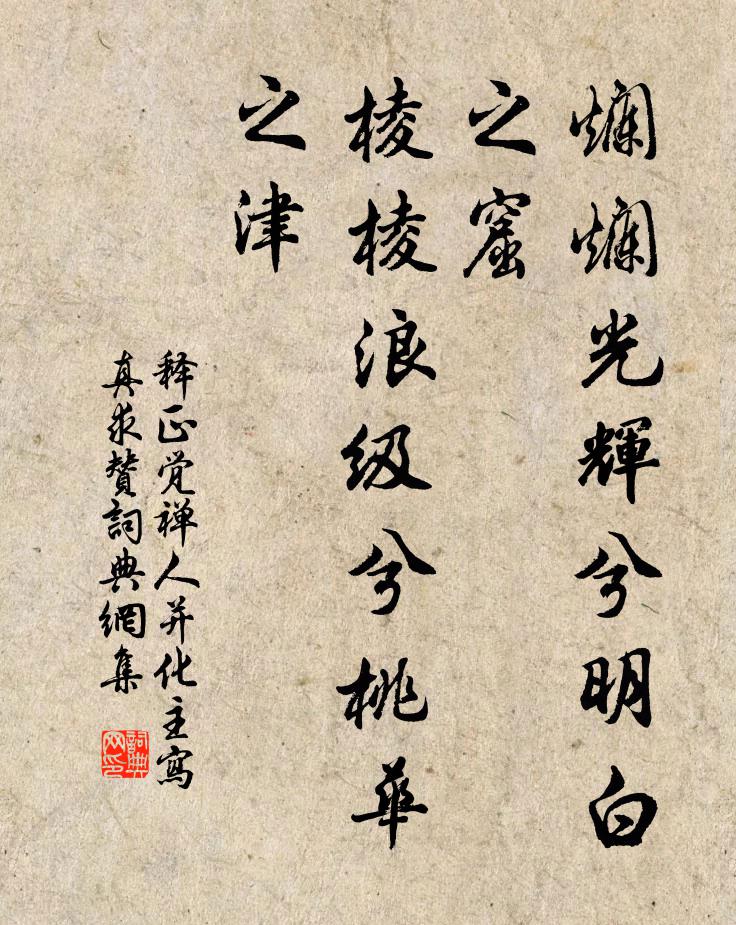 爛爛光輝兮明白
之窟
棱棱浪级兮桃華
之津
释正觉禅人并化主寫
真求賛詞典網集
詞典
网印